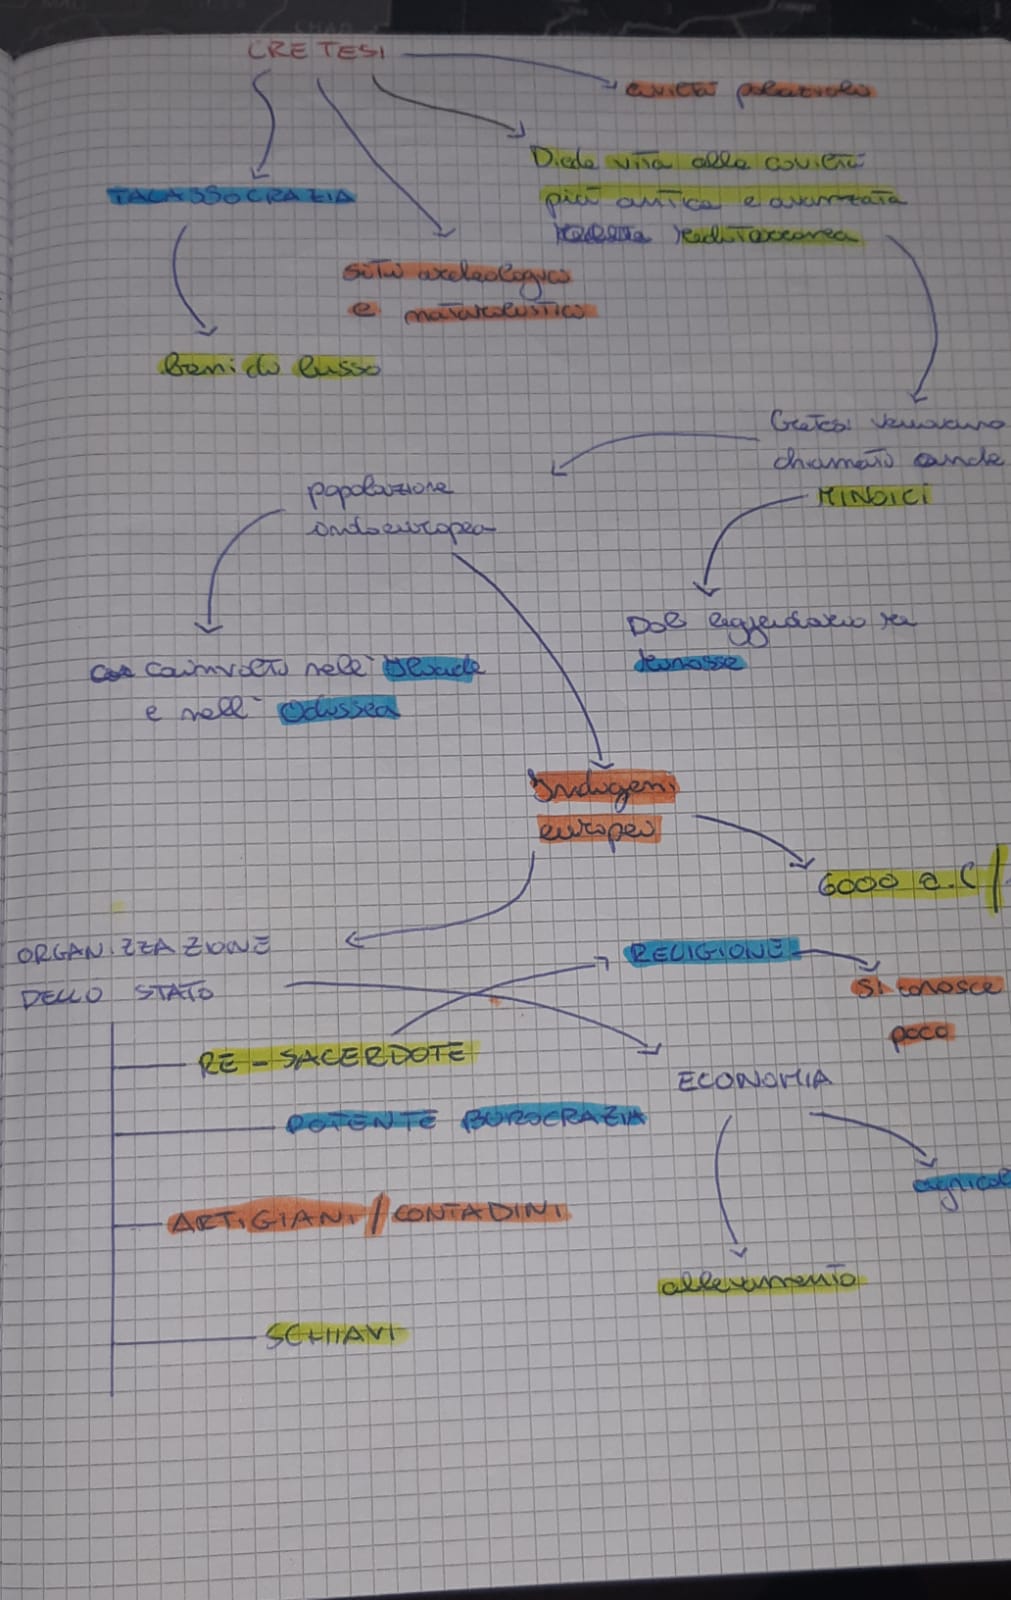 CRETESI
civiltà palaziale
Diede vita alla civiltà
più antica e avanzata
Mediterranea
TALASSOCRAZIA
siti archeologici
e naturalistici
beni di lusso
Cretesi venivano
chiamati anche
MINOICI
popolazione
indoeuropea
Dal leggendario re
Minosse
coinvolti nell'Iliade
e nell'Odissea
Indigeni
europei
6000 a.C/
ORGANIZZAZIONE
DELLO STATO
RELIGIONE
si conosce
poco
RE-SACERDOTE
ECONOMIA
POTENTE BUROCRAZIA
agricol
ARTIGIANI/CONTADINI
allevamento
SCHIAVI